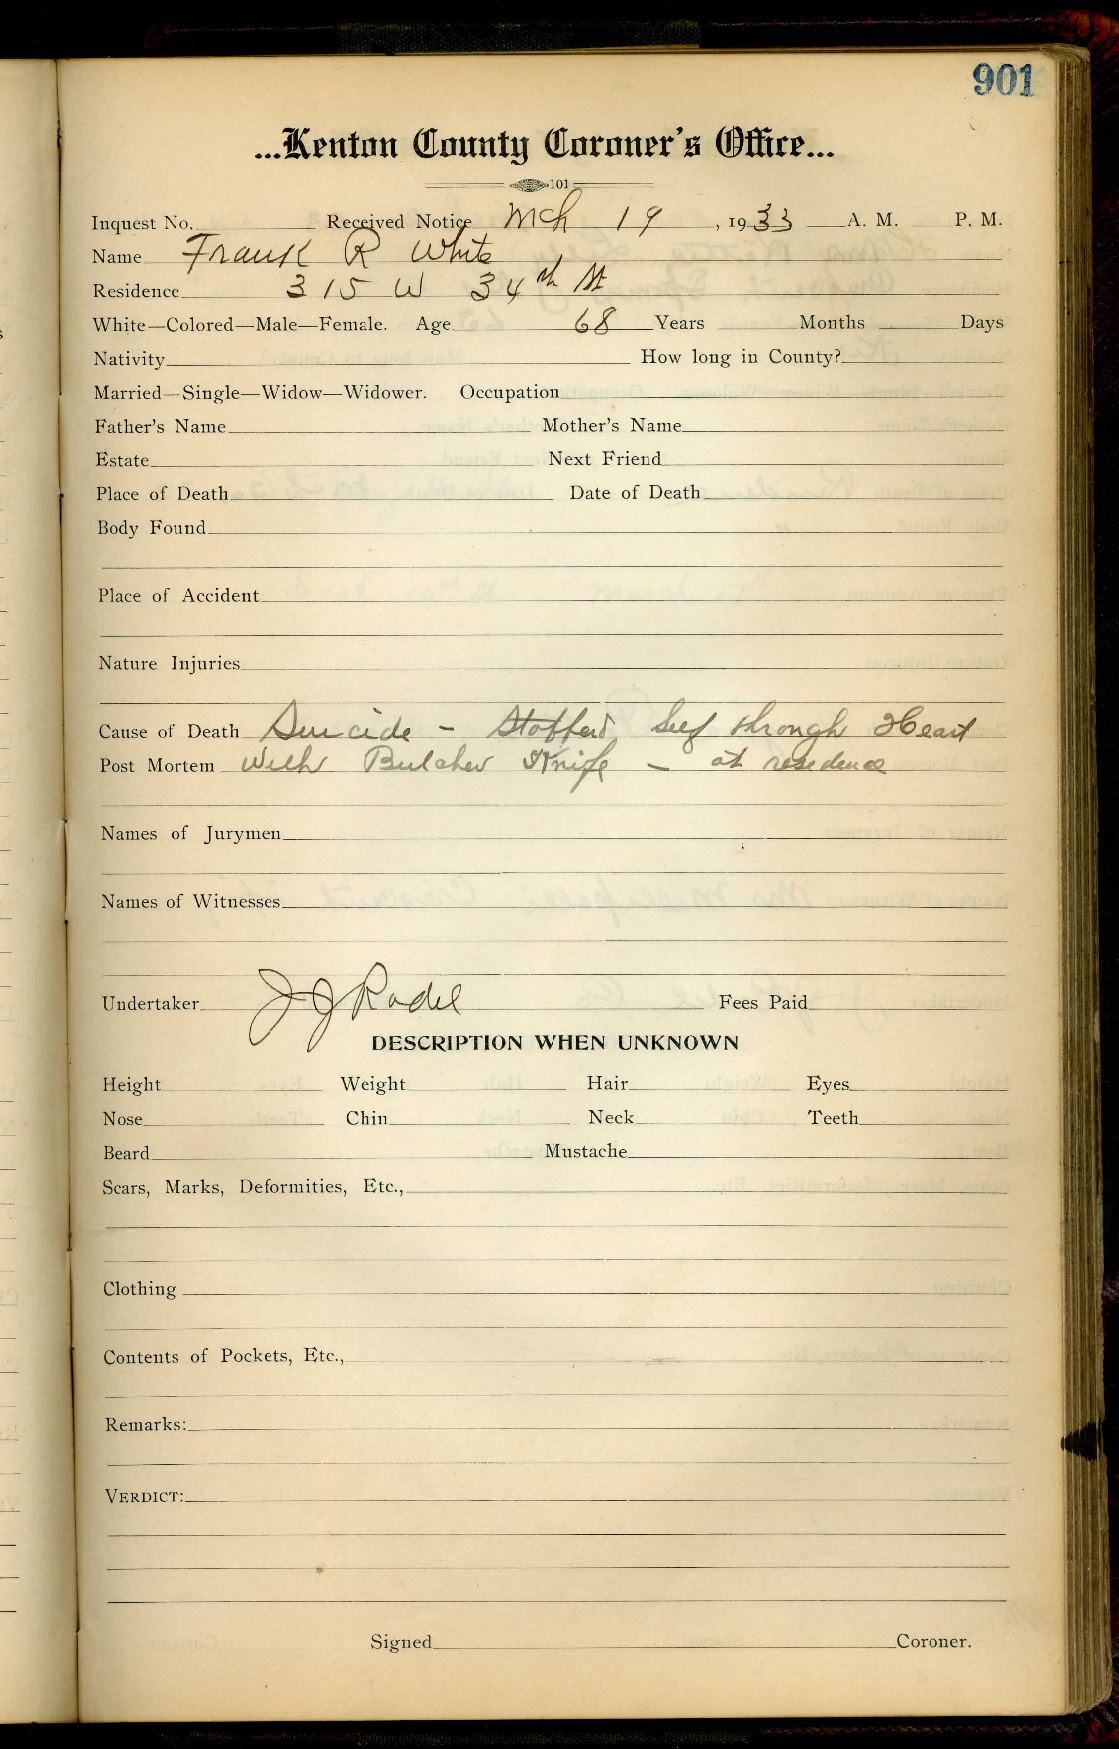 901
...Kenton County Coroner's Office...
101
Inquest No. Received Notice Mch 19, 1933 A. M. P. M.
Name Frank R White
Residence 315 W 34th St
White—Colored—Male—Female. Age 68 Years Months Days
Nativity How long in County?
Married—Single—Widow—Widower. Occupation
Father's Name Mother's Name
Estate Next Friend
Place of Death Date of Death
Body Found
Place of Accident
Nature Injuries
Cause of Death Suicide - Stabbed Self through Heart
Post Mortem With Butcher Knife - at residence
Names of Jurymen
Names of Witnesses
Undertaker J J Radel Fees Paid
DESCRIPTION WHEN UNKNOWN
Height Weight Hair Eyes
Nose Chin Neck Teeth
Beard Mustache
Scars, Marks, Deformities, Etc.,
Clothing
Contents of Pockets, Etc.,
Remarks:
VERDICT:
Signed Coroner.